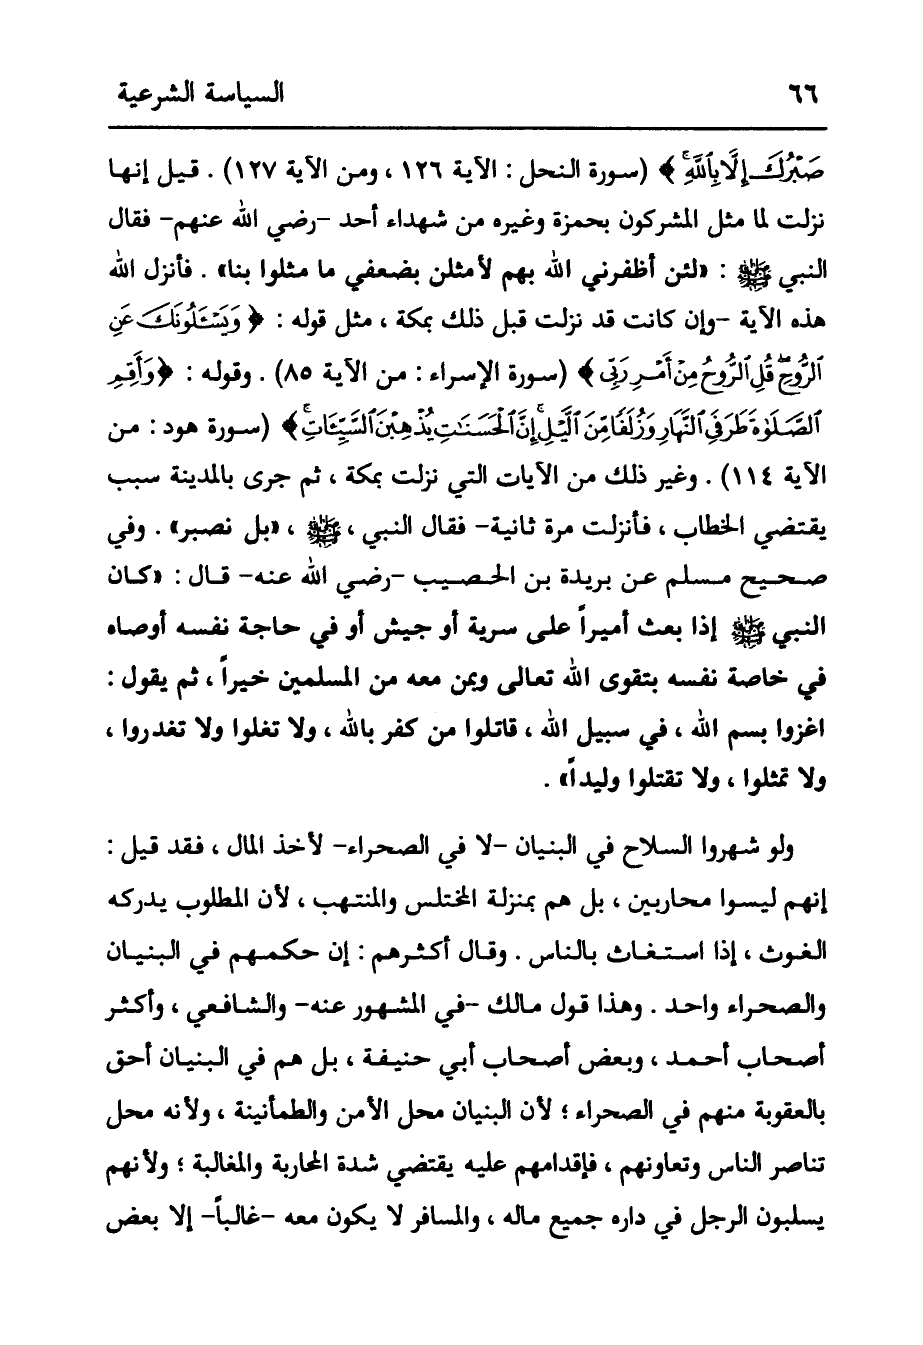 ٦٦ السياسة الشرعية
صَبْرُكَ إِلَّا بِاللَّهِ ﴾ (سورة النحل : الآية ١٢٦ ، ومن الآية ١٢٧) . قيل إنها
نزلت لما مثل المشركون بحمزة وغيره من شهداء أحد -رضي الله عنهم- فقال
النبي ﷺ : «لئن أظفرني الله بهم لأمثلن بضعفي ما مثلوا بنا» . فأنزل الله
هذه الآية -وإن كانت قد نزلت قبل ذلك بمكة ، مثل قوله : ﴿ وَيَسْـَٔلُونَكَ عَنِ
ٱلرُّوحِ ۖ قُلِ ٱلرُّوحُ مِنْ أَمْرِ رَبِّى ﴾ (سورة الإسراء : من الآية ٨٥) . وقوله : ﴿ وَأَقِمِ
ٱلصَّلَوٰةَ طَرَفَىِ ٱلنَّهَارِ وَزُلَفًا مِّنَ ٱلَّيْلِ ۚ إِنَّ ٱلْحَسَنَٰتِ يُذْهِبْنَ ٱلسَّيِّـَٔاتِ ۚ ﴾ (سورة هود : من
الآية ١١٤) . وغير ذلك من الآيات التي نزلت بمكة ، ثم جرى بالمدينة سبب
يقتضي الخطاب ، فأنزلت مرة ثانية- فقال النبي ، ﷺ ، «بل نصبر» . وفي
صحيح مسلم عن بريدة بن الحصيب -رضي الله عنه- قال : «كان
النبي ﷺ إذا بعث أميراً على سرية أو جيش أو في حاجة نفسه أوصاه
في خاصة نفسه بتقوى الله تعالى وبمن معه من المسلمين خيراً ، ثم يقول :
اغزوا بسم الله ، في سبيل الله ، قاتلوا من كفر بالله ، ولا تغلوا ولا تغدروا ،
ولا تمثلوا ، ولا تقتلوا وليداً» .
ولو شهروا السلاح في البنيان -لا في الصحراء- لأخذ المال ، فقد قيل :
إنهم ليسوا محاربين ، بل هم بمنزلة المختلس والمنتهب ، لأن المطلوب يدركه
الغوث ، إذا استغاث بالناس . وقال أكثرهم : إن حكمهم في البنيان
والصحراء واحد . وهذا قول مالك -في المشهور عنه- والشافعي ، وأكثر
أصحاب أحمد ، وبعض أصحاب أبي حنيفة ، بل هم في البنيان أحق
بالعقوبة منهم في الصحراء ؛ لأن البنيان محل الأمن والطمأنينة ، ولأنه محل
تناصر الناس وتعاونهم ، فإقدامهم عليه يقتضي شدة المحاربة والمغالبة ؛ ولأنهم
يسلبون الرجل في داره جميع ماله ، والمسافر لا يكون معه -غالباً- إلا بعض